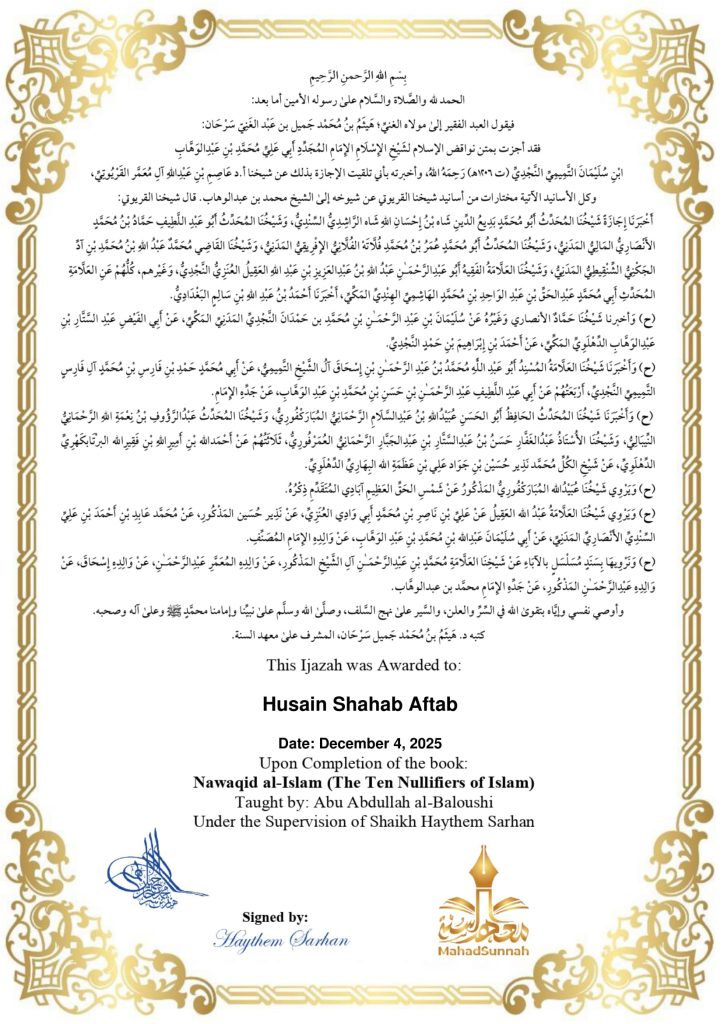 بِسْمِ اللهِ الرَّحمنِ الرَّحِيمِ
الحمد لله والصَّلاة والسَّلام علىٰ رسوله الأمين أما بعد:
فيقول العبد الفقير إلىٰ مولاه الغنيِّ؛ هَيثَمُ بنُ مُحَمْد جَميل بن عَبْد الغَنِيّ سَرْحَان:
فقد أجزت بمتن نواقض الإسلام لشَيْخِ الإِسْلَامِ الإِمَامِ المُجَدِّدِ أَبِي عَلِيٍّ مُحَمَّدِ بْنِ عَبْدِالوَهَّابِ
ابْنِ سُلَيْمَانَ التَّمِيمِيِّ النَّجْدِيِّ (ت ١٢٠٦هـ) رَحِمَهُ اللهُ، وأخبرته بأني تلقيت الإجازة بذلك عن شيخنا أ.د عَاصِمِ بْنِ عَبْدِاللهِ آلِ مُعَمَّر القَرْيُوتِيِّ،
وكل الأسانيد الآتية مختارات من أسانيد شيخنا القريوتي عن شيوخه إلى الشيخ محمد بن عبدالوهاب. قال شيخنا القريوتي:
أَخْبَرَنَا إِجَازَةً شَيْخُنَا المُحَدِّثُ أَبُو مُحَمَّدٍ بَدِيعُ الدِّينِ شَاه بْنُ إِحْسَانِ اللهِ شَاه الرَّاشِدِيُّ السِّنْدِيُّ، وَشَيْخُنَا المُحَدِّثُ أَبُو عَبْدِ اللَّطِيفِ حَمَّادُ بْنُ مُحَمَّدٍ
الأَنْصَارِيُّ المَالِيُّ المَدَنِيُّ، وَشَيْخُنَا المُحَدِّثُ أَبُو مُحَمَّدٍ عُمَرُ بْنُ مُحَمَّدٍ فُلَّاتَه الفُلَّانِيُّ الإِفْرِيقِيُّ المَدَنِيُّ، وَشَيْخُنَا القَاضِي مُحَمَّدٌ عَبْدُ اللهِ بْنُ مُحَمَّدِ بْنِ آدَّ
الجَكَنِيُّ الشِّنْقِيطِيُّ المَدَنِيُّ، وَشَيْخُنَا العَلَّامَةُ الفَقِيهُ أَبُو عَبْدِالرَّحْمَـٰنِ عَبْدُ اللهِ بْنُ عَبْدِالعَزِيزِ بْنِ عَبْدِ اللهِ العَقِيلُ العُنَزِيُّ النَّجْدِيُّ، وَغَيْرهم، كُلُّهُمْ عَنِ العَلَّامَةِ
المُحَدِّثِ أَبِي مُحَمَّدٍ عَبْدِالحَقِّ بْنِ عَبْدِ الوَاحِدِ بْنِ مُحَمَّدٍ الهَاشِمِيِّ الهِنْدِيِّ المَكِّيِّ، أَخْبَرَنَا أَحْمَدُ بْنُ عَبْدِ اللهِ بْنِ سَالِمٍ البَغْدَادِيُّ.
(ح) وَأخبرنا شَيْخُنَا حَمَّادٌ الأنصاري وَغَيْرُهُ عَنْ سُلَيْمَانَ بْنِ عَبْدِ الرَّحْمَـٰنِ بْنِ مُحَمَّدِ بن حَمْدَانَ النَّجْدِيِّ المَدَنِيِّ المَكِّيِّ، عَنْ أَبِي الفَيْضِ عَبْدِ السَّتَّارِ بْنِ
عَبْدِالوَهَّابِ الدِّهْلَوِيِّ المَكِّيِّ، عَنْ أَحْمَدَ بْنِ إِبْرَاهِيمَ بْنِ حَمَدٍ النَّجْدِيِّ.
(ح) وَأَخْبَرَنَا شَيْخُنَا العَلَّامَةُ المُسْنِدُ أَبُو عَبْدِ اللَّهِ مُحَمَّدُ بْنُ عَبْدِ الرَّحْمَـٰنِ بْنِ إِسْحَاقَ آلُ الشَّيْخِ التَّمِيمِيُّ، عَنْ أَبِي مُحَمَّدٍ حَمَدِ بْنِ فَارِسِ بْنِ مُحَمَّدٍ آلِ فَارِسٍ
التَّمِيمِيِّ النَّجْدِيِّ، أَرْبَعَتُهُمْ عَنْ أَبِي عَبْدِ اللَّطِيفِ عَبْدِ الرَّحْمَـٰنِ بْنِ حَسَنِ بْنِ مُحَمَّدِ بْنِ عَبْدِ الوَهَّابِ، عَنْ جَدِّهِ الإِمَامِ.
(ح) وَأَخْبَرَنَا شَيْخُنَا المُحَدِّثُ الحَافِظُ أَبُو الحَسَنِ عُبَيْدُاللهِ بْنُ عَبْدِالسَّلَامِ الرَّحْمَانِيُّ المُبَارَكْفُورِيُّ، وَشَيْخُنَا المُحَدِّثُ عَبْدُالرَّؤُوفِ بْنُ نِعْمَةِ اللهِ الرَّحْمَانِيُّ
النِّيبَالِيُّ، وَشَيْخُنَا الأُسْتَاذُ عَبْدُالغَفَّارِ حَسَنُ بْنُ عَبْدِالسَّتَّارِ بْنِ عَبْدِالجَبَّارِ الرَّحْمَانِيُّ العُمَرْفُورِيُّ، ثَلَاثَتُهُمْ عَنْ أَحْمَدالله بْنِ أَمِيرِاللهِ بْنِ فَقِيرِالله البرتَابكَهْرِيِّ
الدِّهْلَوِيِّ، عَنْ شَيْخِ الكُلِّ مُحَمَّد نَذِير حُسَيْن بْنِ جَوَاد عَلِي بْنِ عَظَمَةِ الله البِهَارِيِّ الدِّهْلَوِيِّ.
(ح) وَيَرْوِي شَيْخُنَا عُبَيْدُالله المُبَارَكْفُورِيُّ المَذْكُورُ عَنْ شَمْسِ الحَقِّ العَظِيمِ آبَادِي المُتَقَدِّمِ ذِكْرُهُ.
(ح) وَيَرْوِي شَيْخُنَا العَلَّامَةُ عَبْدُ الله العَقِيلُ عَنْ عَلِيِّ بْنِ نَاصِرِ بْنِ مُحَمَّدٍ أَبِي وَادِي العُنَزِيِّ، عَنْ نَذِير حُسَيْن المَذْكُورِ، عَنْ مُحَمَّد عَابِد بْنِ أَحْمَدَ بْنِ عَلِيٍّ
السِّنْدِيِّ الأَنْصَارِيِّ المَدَنِيِّ، عَنْ أَبِي سُلَيْمَانَ عَبْدِالله بْنِ مُحَمَّدِ بْنِ عَبْدِ الوَهَّابِ، عَنْ وَالِدِهِ الإِمَامِ المُصَنِّفِ.
(ح) وَنَرْوِيهَا بِسَنَدٍ مُسَلْسَلٍ بالآبَاءِ عَنْ شَيْخِنَا العَلَّامَةِ مُحَمَّدِ بْنِ عَبْدِالرَّحْمَـٰنِ آلِ الشَّيْخِ المَذْكُورِ، عَنْ وَالِدِهِ المُعَمَّرِ عَبْدِالرَّحْمَـٰنِ، عَنْ وَالِدِهِ إِسْحَاقَ، عَنْ
وَالِدِهِ عَبْدِالرَّحْمَـٰنِ المَذْكُورِ، عَنْ جَدِّهِ الإِمَامِ محمَّد بن عبدالوهَّاب.
وأوصي نفسي وإيَّاه بتقوىٰ الله في السِّرِّ والعلن، والسَّير علىٰ نهج السَّلف، وصلَّىٰ الله وسلَّم علىٰ نبيِّنا وإمامنا محمَّدٍ ﷺ وعلىٰ آله وصحبه.
كتبه د. هَيثَمُ بنُ مُحَمْد جَميل سَرْحَان، المشرف علىٰ معهد السنة.
This Ijazah was Awarded to:
Husain Shahab Aftab
Date: December 4, 2025
Upon Completion of the book:
Nawaqid al-Islam (The Ten Nullifiers of Islam)
Taught by: Abu Abdullah al-Baloushi
Under the Supervision of Shaikh Haythem Sarhan
Signed by:
Haythem Sarhan
معهد السنة
MahadSunnah